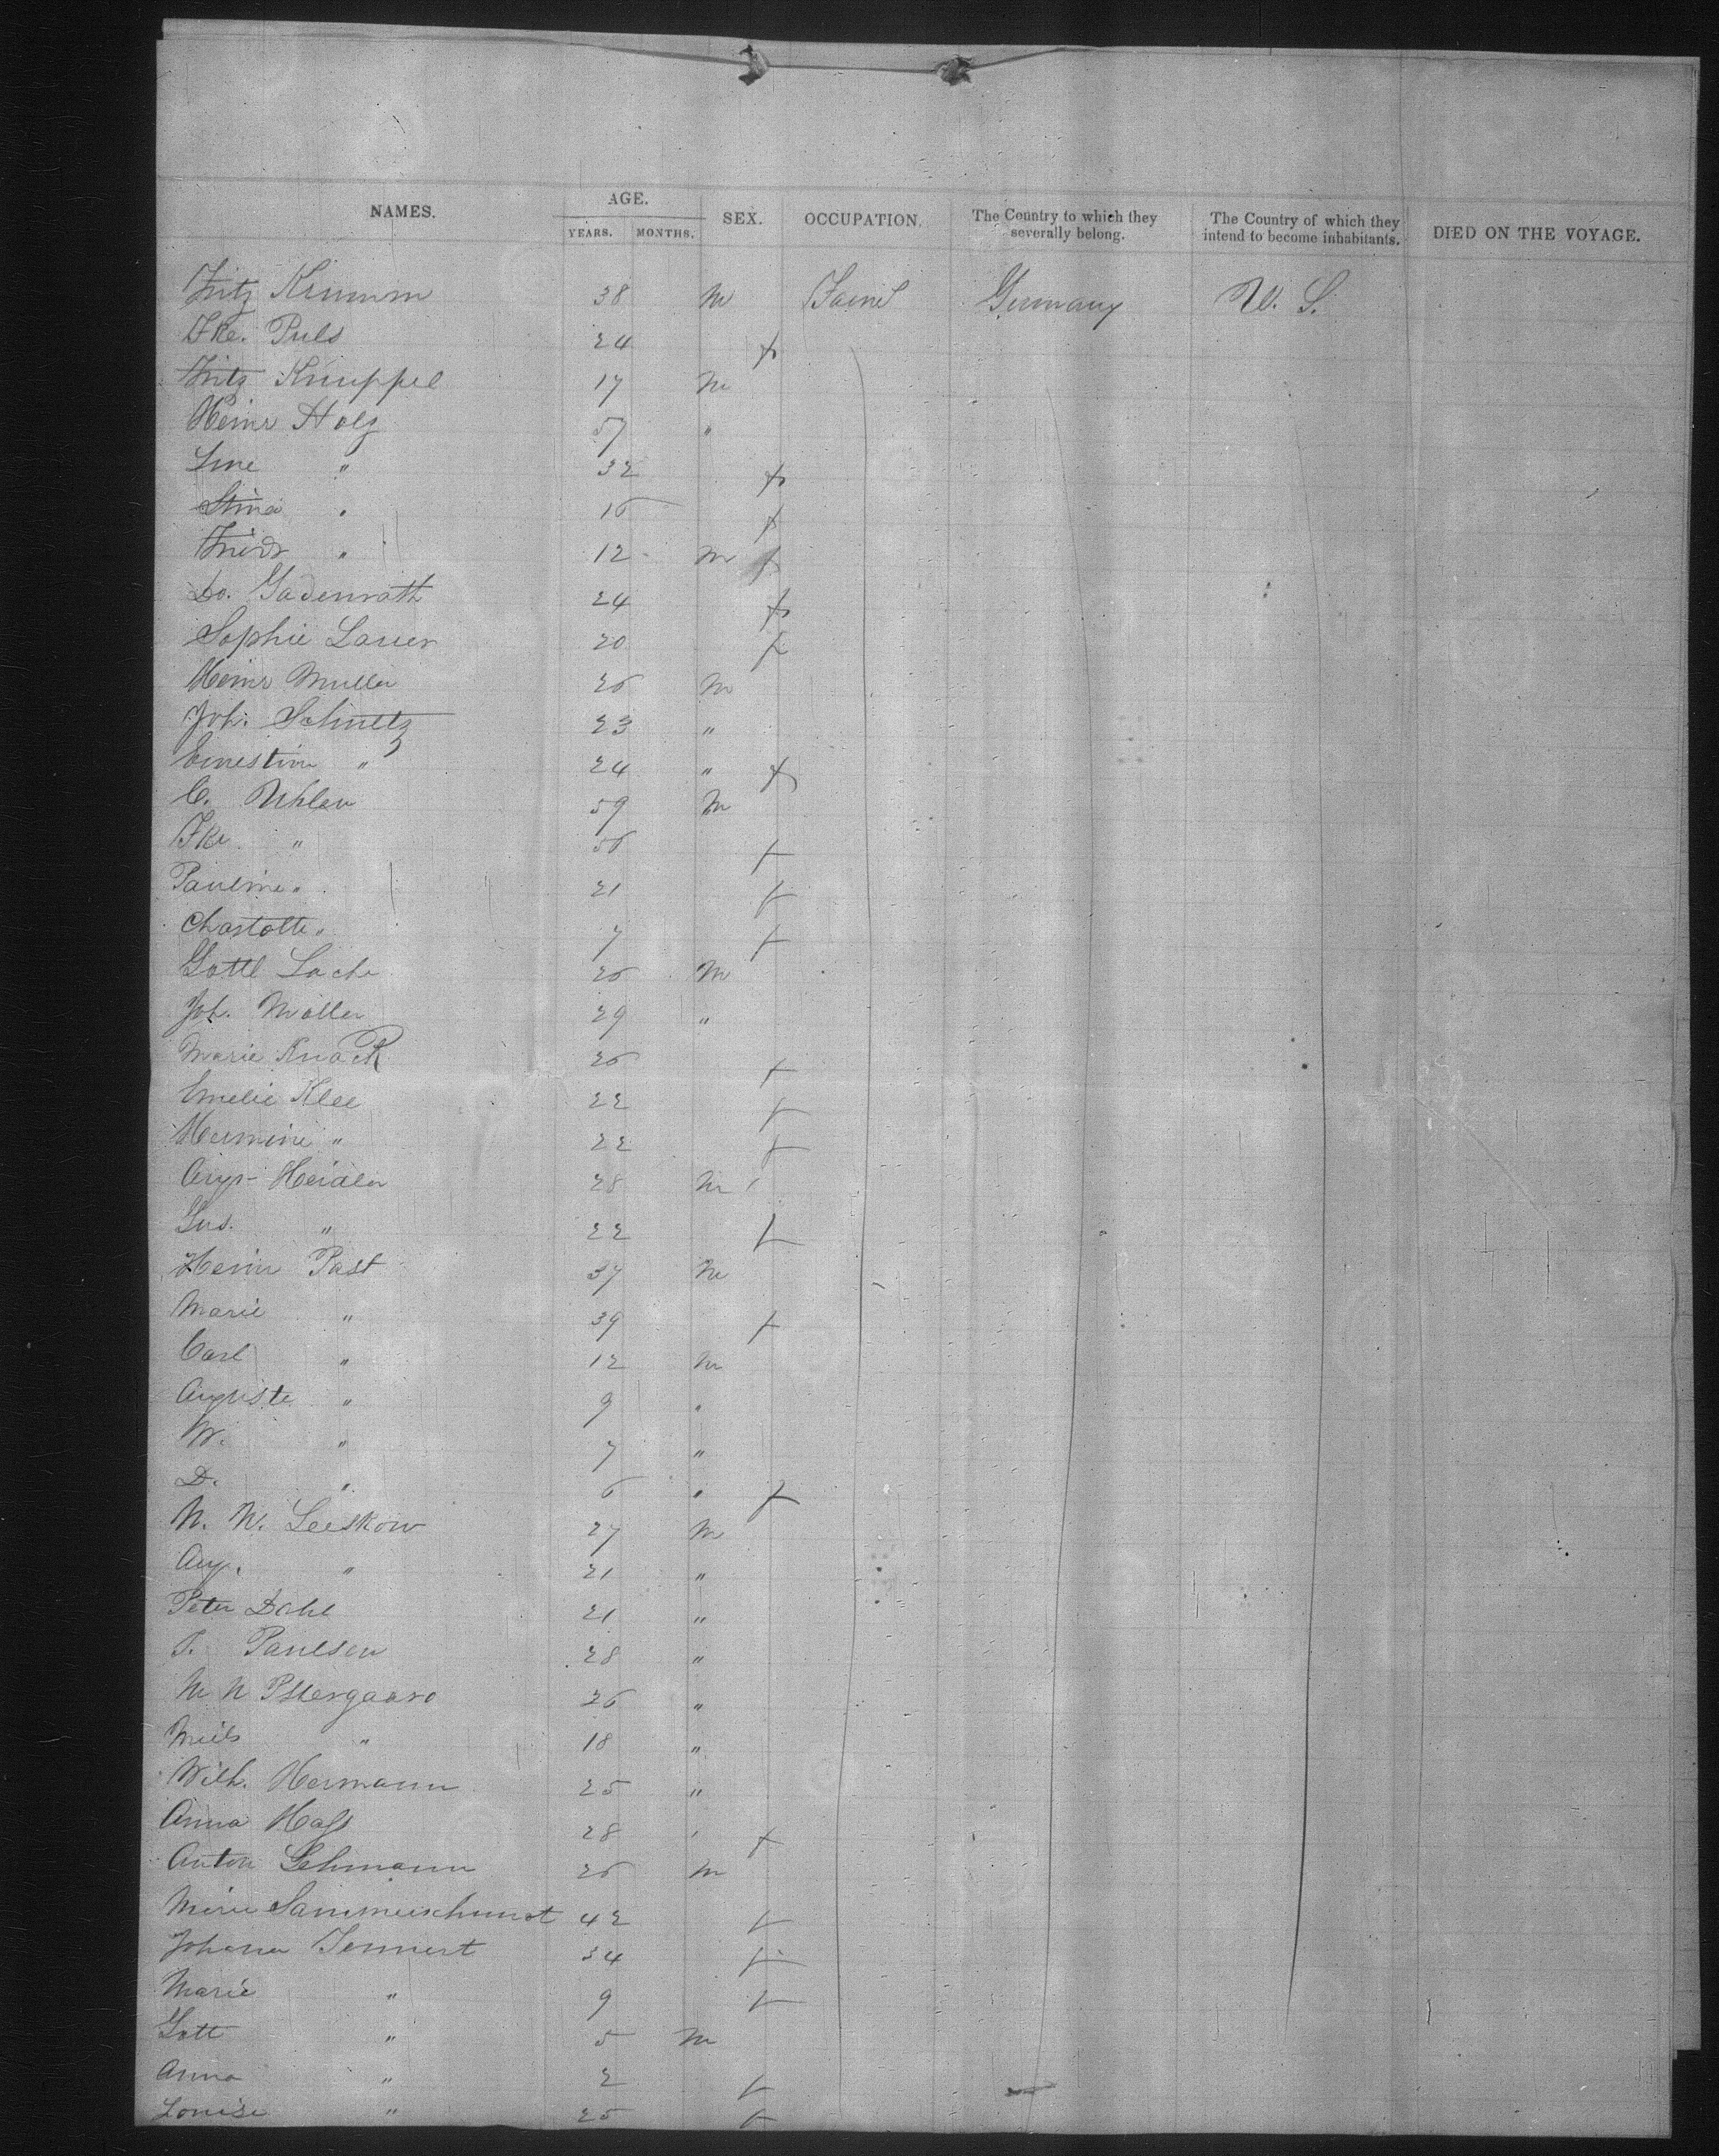 NAMES. AGE. SEX. OCCUPATION. The Country to which they severally belong. The Country of which they intend to become inhabitants. DIED ON THE VOYAGE.
YEARS. MONTHS.
Fritz Krumm 38 M Germany U. S.
Fke. Puls 24 f
Fritz Knuppel 17 M
Heinr Holz 57 "
Line " 32 f
Stina " 16 f
Friedr " 12 M f
Do. Gadenrath 24 f
Sophie Lauer 20 f
Heinr Muller 26 M
Joh. Schultz 23 "
Ernestine " 24 " f
C. Uhlau 59 M
Fke " 56 f
Pauline " 21 f
Charlotte " 7 f
Gottl Lach 26 M
Joh. Moller 29 "
Marie Knack 26 f
Emelie Klee 22 f
Hermine " 22 f
Aug. Heidler 28 M
Gus. " 22 f
Heinr Past 37 M
Marie " 39 f
Carl " 12 M
Auguste " 9 "
W. " 7 "
D. " 6 " f
N. W. Leeskow 27 M
Aug. " 21 "
Peter Dahl 21 "
P. Paulsen 28 "
M N 26 "
Niels " 18 "
Wilh. Hermann 25 "
Anna Hass 28 ' f
Anton Lehmann 26 M
42 f
Johana Tennert 34 f
Marie " 9 f
Gott " 5 M
Anna " 2 f
Louise " 25 f